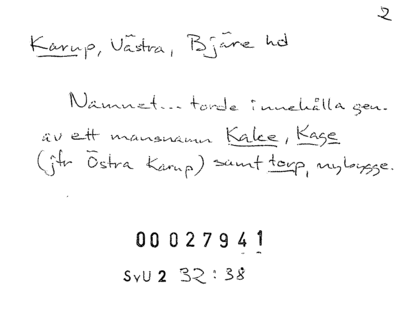 2
Karup, Västra, Bjäre hd
Namnet... torde innehålla gen.
av ett mansnamn Kake, Kage
(jfr Östra Karup) samt torp, nybygge.
00 027941
SvU 2 32:38